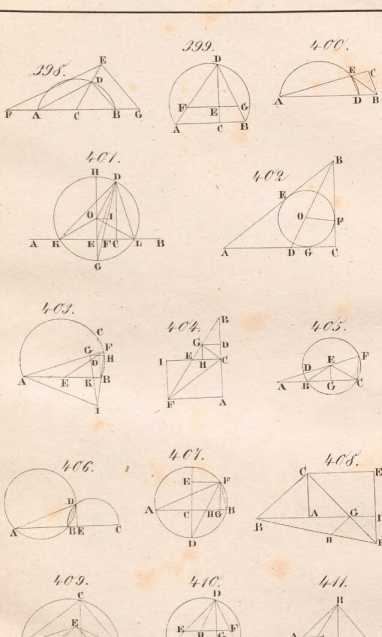 398. 399. 400.
E D F A C B G
D F E G A C B
E C A D B
401. 402.
H D O I A K E F C L B G
B E O F A D G C
403. 404. 405.
C G F D H A E K B I
B G D E C I H F A
E F D A B G C
406. 407. 408.
D A B E C
E F A C H G B D
C E B A G H
409. 410. 411.
C E
D E F
B